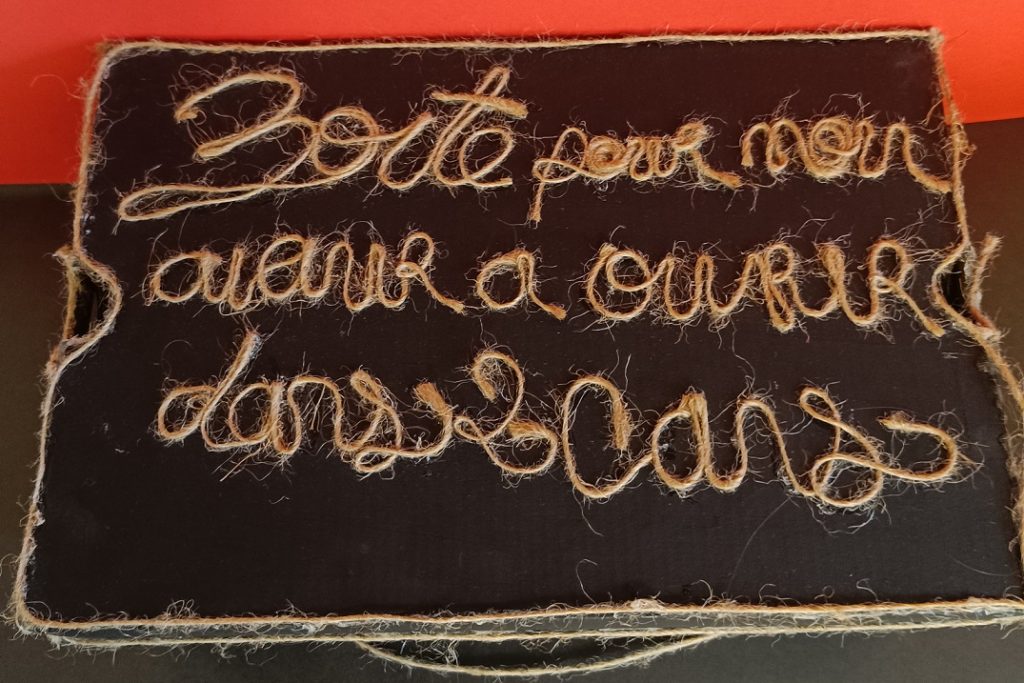 Boite pour mon
avenir a ouvrir
dans 20 ans